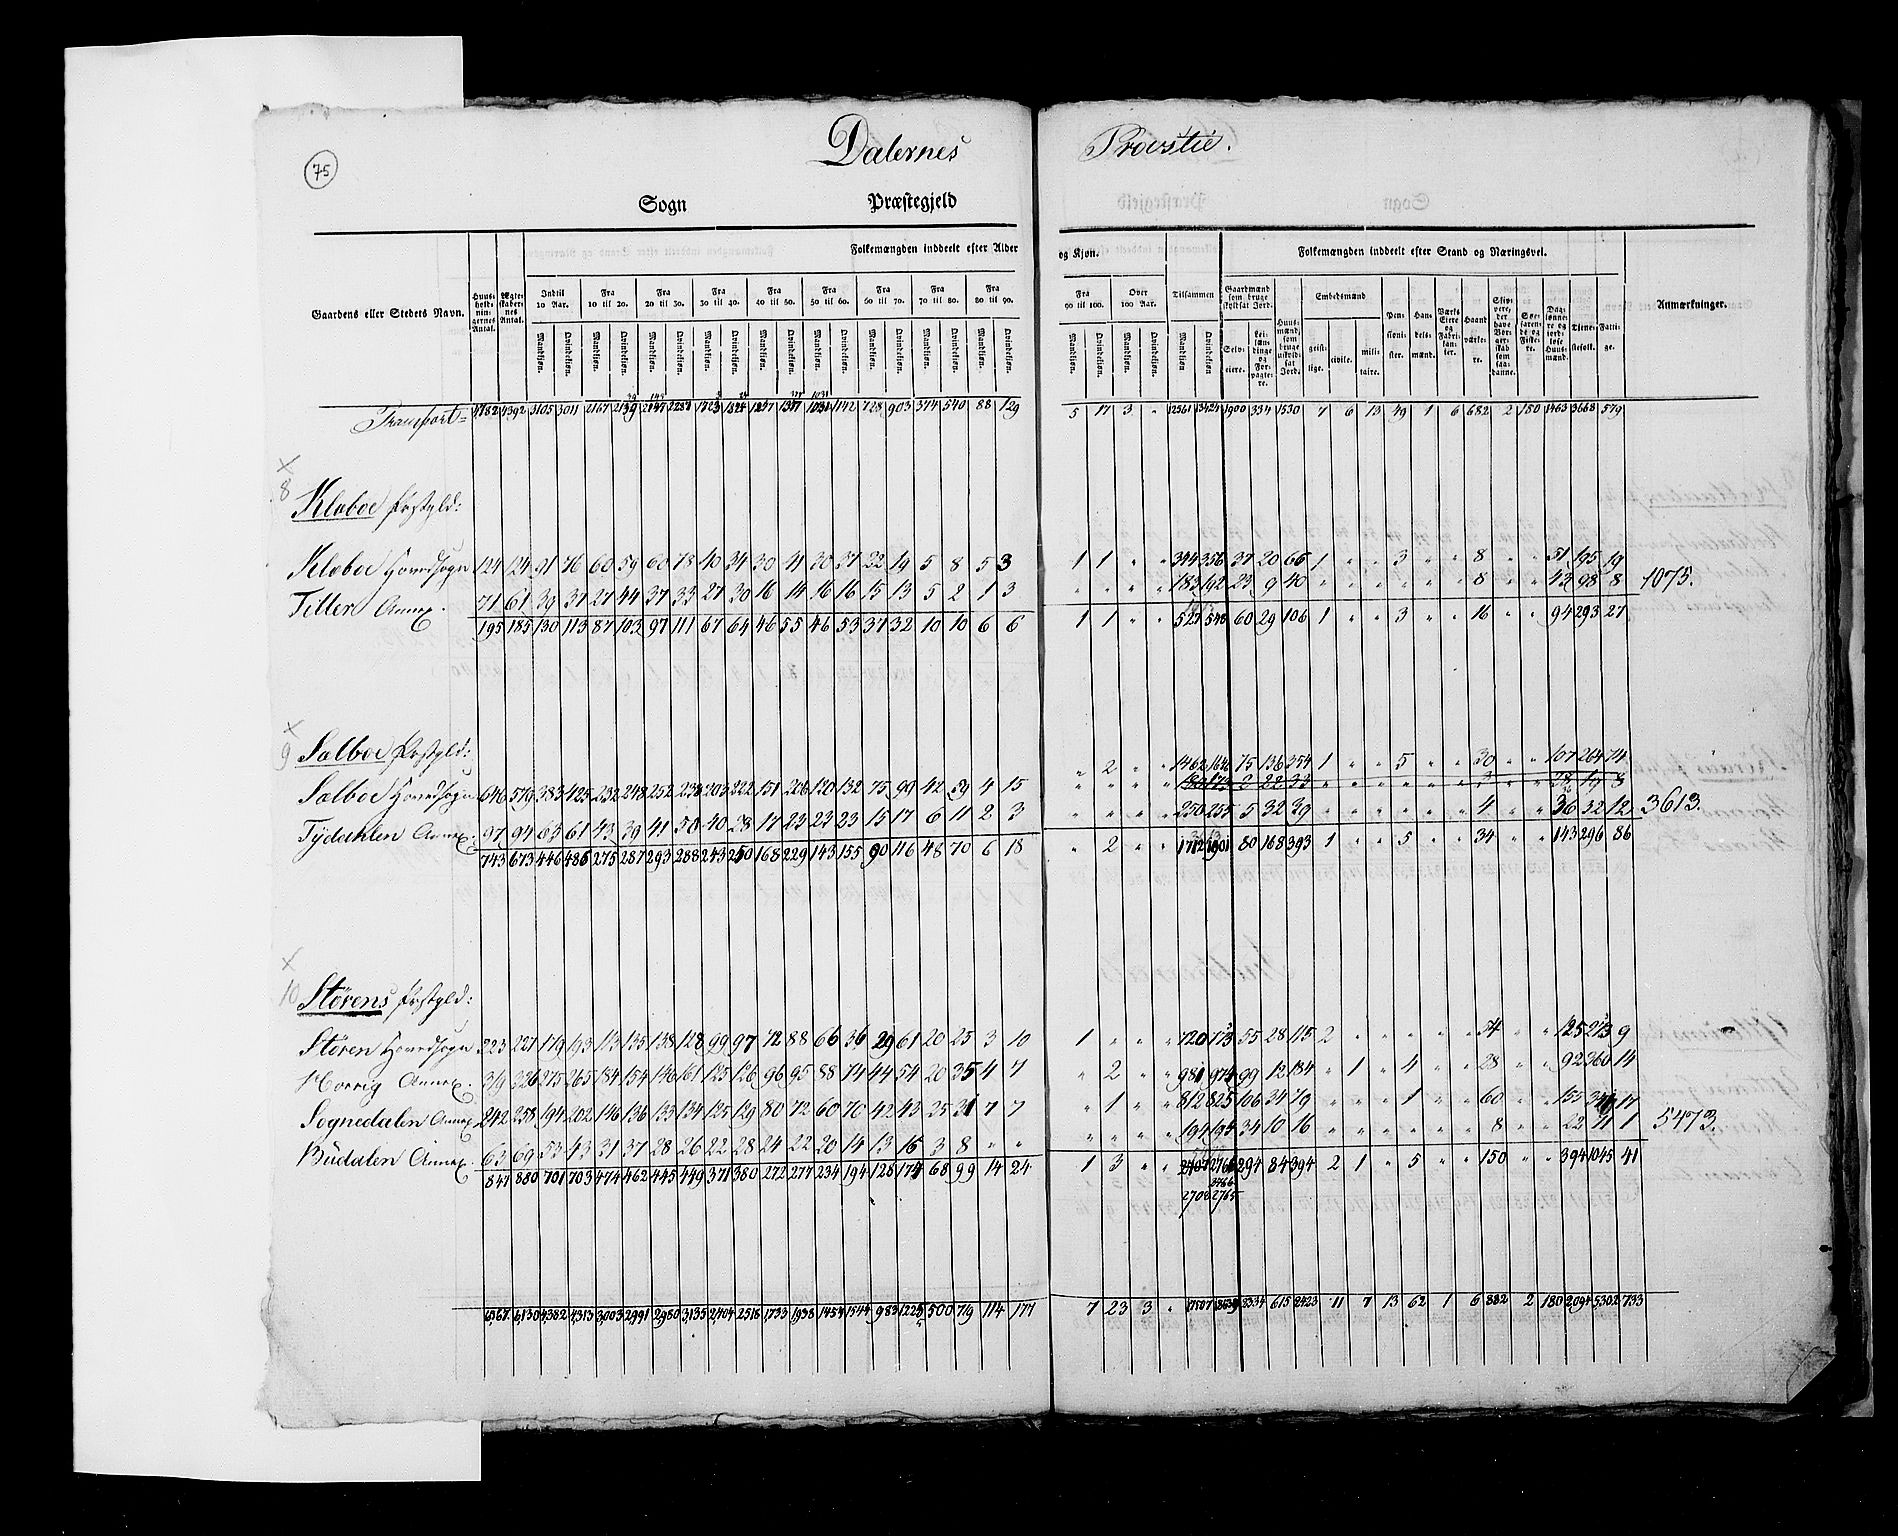 75
Dalernes Provstie.
Sogn Præstegjeld
Gaardens eller Stedets Navn. Huusholdningernes Antal. Ægteskabernes Antal. Folkemængden inddeelt efter Alder og Kjøn. Tilsammen Folkemængden inddeelt efter Stand og Næringsvei. Anmærkninger.
Indtil 10 Aar. Fra 10 til 20. Fra 20 til 30. Fra 30 til 40. Fra 40 til 50. Fra 50 til 60. Fra 60 til 70. Fra 70 til 80. Fra 80 til 90. Fra 90 til 100. Over 100 Aar. Gaardmænd som bruge skyldsat Jord. Embedsmænd
Mandkjøn. Qvindekjøn. Mandkjøn. Qvindekjøn. Mandkjøn. Qvindekjøn. Mandkjøn. Qvindekjøn. Mandkjøn. Qvindekjøn. Mandkjøn. Qvindekjøn. Mandkjøn. Qvindekjøn. Mandkjøn. Qvindekjøn. Mandkjøn. Qvindekjøn. Mandkjøn. Qvindekjøn. Mandkjøn. Qvindekjøn. Mandkjøn. Qvindekjøn. Selveiere. Leilændinge og Forpagtere. Huusmænd, som bruge uskyldsat Jord. geistlige. civile. militaire. Pensionister. Handelsmænd. Værks Eiere og Fabrikanter. Haandværkere. Skippere, der have Borgerskab som saadanne. Søefarende og Fiskere. Daglønnere og jordløse Huusmænd. Tjenestefolk. Fattige.
Transport 4782 4392 3105 3011 2167 2139 2145 2287 1723 1824 1247 1377 1031 1142 728 903 374 540 88 129 5 17 3 " 12561 13424 1900 334 1530 7 6 13 49 1 6 682 2 180 1463 3668 579
8 Klæboe Præstgld:
Klæboe Hovedsogn 124 124 91 76 60 59 60 78 40 34 30 41 30 37 22 19 5 8 5 3 1 1 " " 344 356 37 20 66 1 " " 3 " " 8 " " 51 195 19
Tiller Annex. 71 61 39 37 27 44 37 33 27 30 16 14 16 16 15 13 5 2 1 3 " " " " 183 192 23 9 40 " " " " " " 8 " " 43 98 8 1075.
195 185 130 113 87 103 97 111 67 64 46 55 46 53 37 32 10 10 6 6 1 1 " " 527 548 60 29 106 1 " " 3 " " 16 " " 94 293 27
9 Sælboe Præstgld:
Sælboe Hovedsogn 646 579 383 425 232 248 252 238 203 222 151 206 120 132 75 99 42 59 4 15 " 2 " " 1462 1646 75 136 354 1 " " 5 " " 30 " " 107 264 74
Tydahlen Annex. 97 94 63 61 43 39 41 50 40 28 17 23 23 23 15 17 6 11 2 3 " " " " 250 255 5 32 39 " " " " " " 4 " " 36 32 12 3613.
743 673 446 486 275 287 293 288 243 250 168 229 143 155 90 116 48 70 6 18 " 2 " " 1712 1901 80 168 393 1 " " 5 " " 34 " " 143 296 86
10 Størens Præstgld:
Støren Hovedsogn 223 227 179 193 113 135 138 128 99 97 72 88 66 36 29 61 20 25 3 10 1 " " " 720 773 55 28 115 2 " " " " " 54 " " 125 273 9
Horrig Annex. 319 326 275 265 184 154 146 161 125 126 96 95 88 74 44 54 20 35 4 7 " 2 " " 981 974 99 12 184 " 1 " 4 " " 28 " " 92 360 14
Sognedalen Annex 242 258 194 202 146 136 135 134 125 129 80 72 60 70 42 43 25 31 7 7 " 1 " " 812 825 106 34 79 " " " 1 " " 60 " " 155 341 17
Budalen Annex. 63 69 53 43 31 37 28 26 22 28 24 22 20 14 13 16 3 8 " " " " " " 194 194 34 10 16 " " " " " " 8 " " 22 71 1 5473.
847 880 701 703 474 462 445 449 371 380 272 277 234 194 128 174 68 99 14 24 1 3 " " 2707 2766 294 84 394 2 1 " 5 " " 150 " " 394 1045 41
2708 2765
6567 6130 4382 4313 3003 2991 2980 3135 2404 2518 1733 1938 1454 1544 983 1225 500 719 114 177 7 23 3 " 17507 18639 2334 615 2423 11 7 13 62 1 6 882 2 180 2094 5302 733